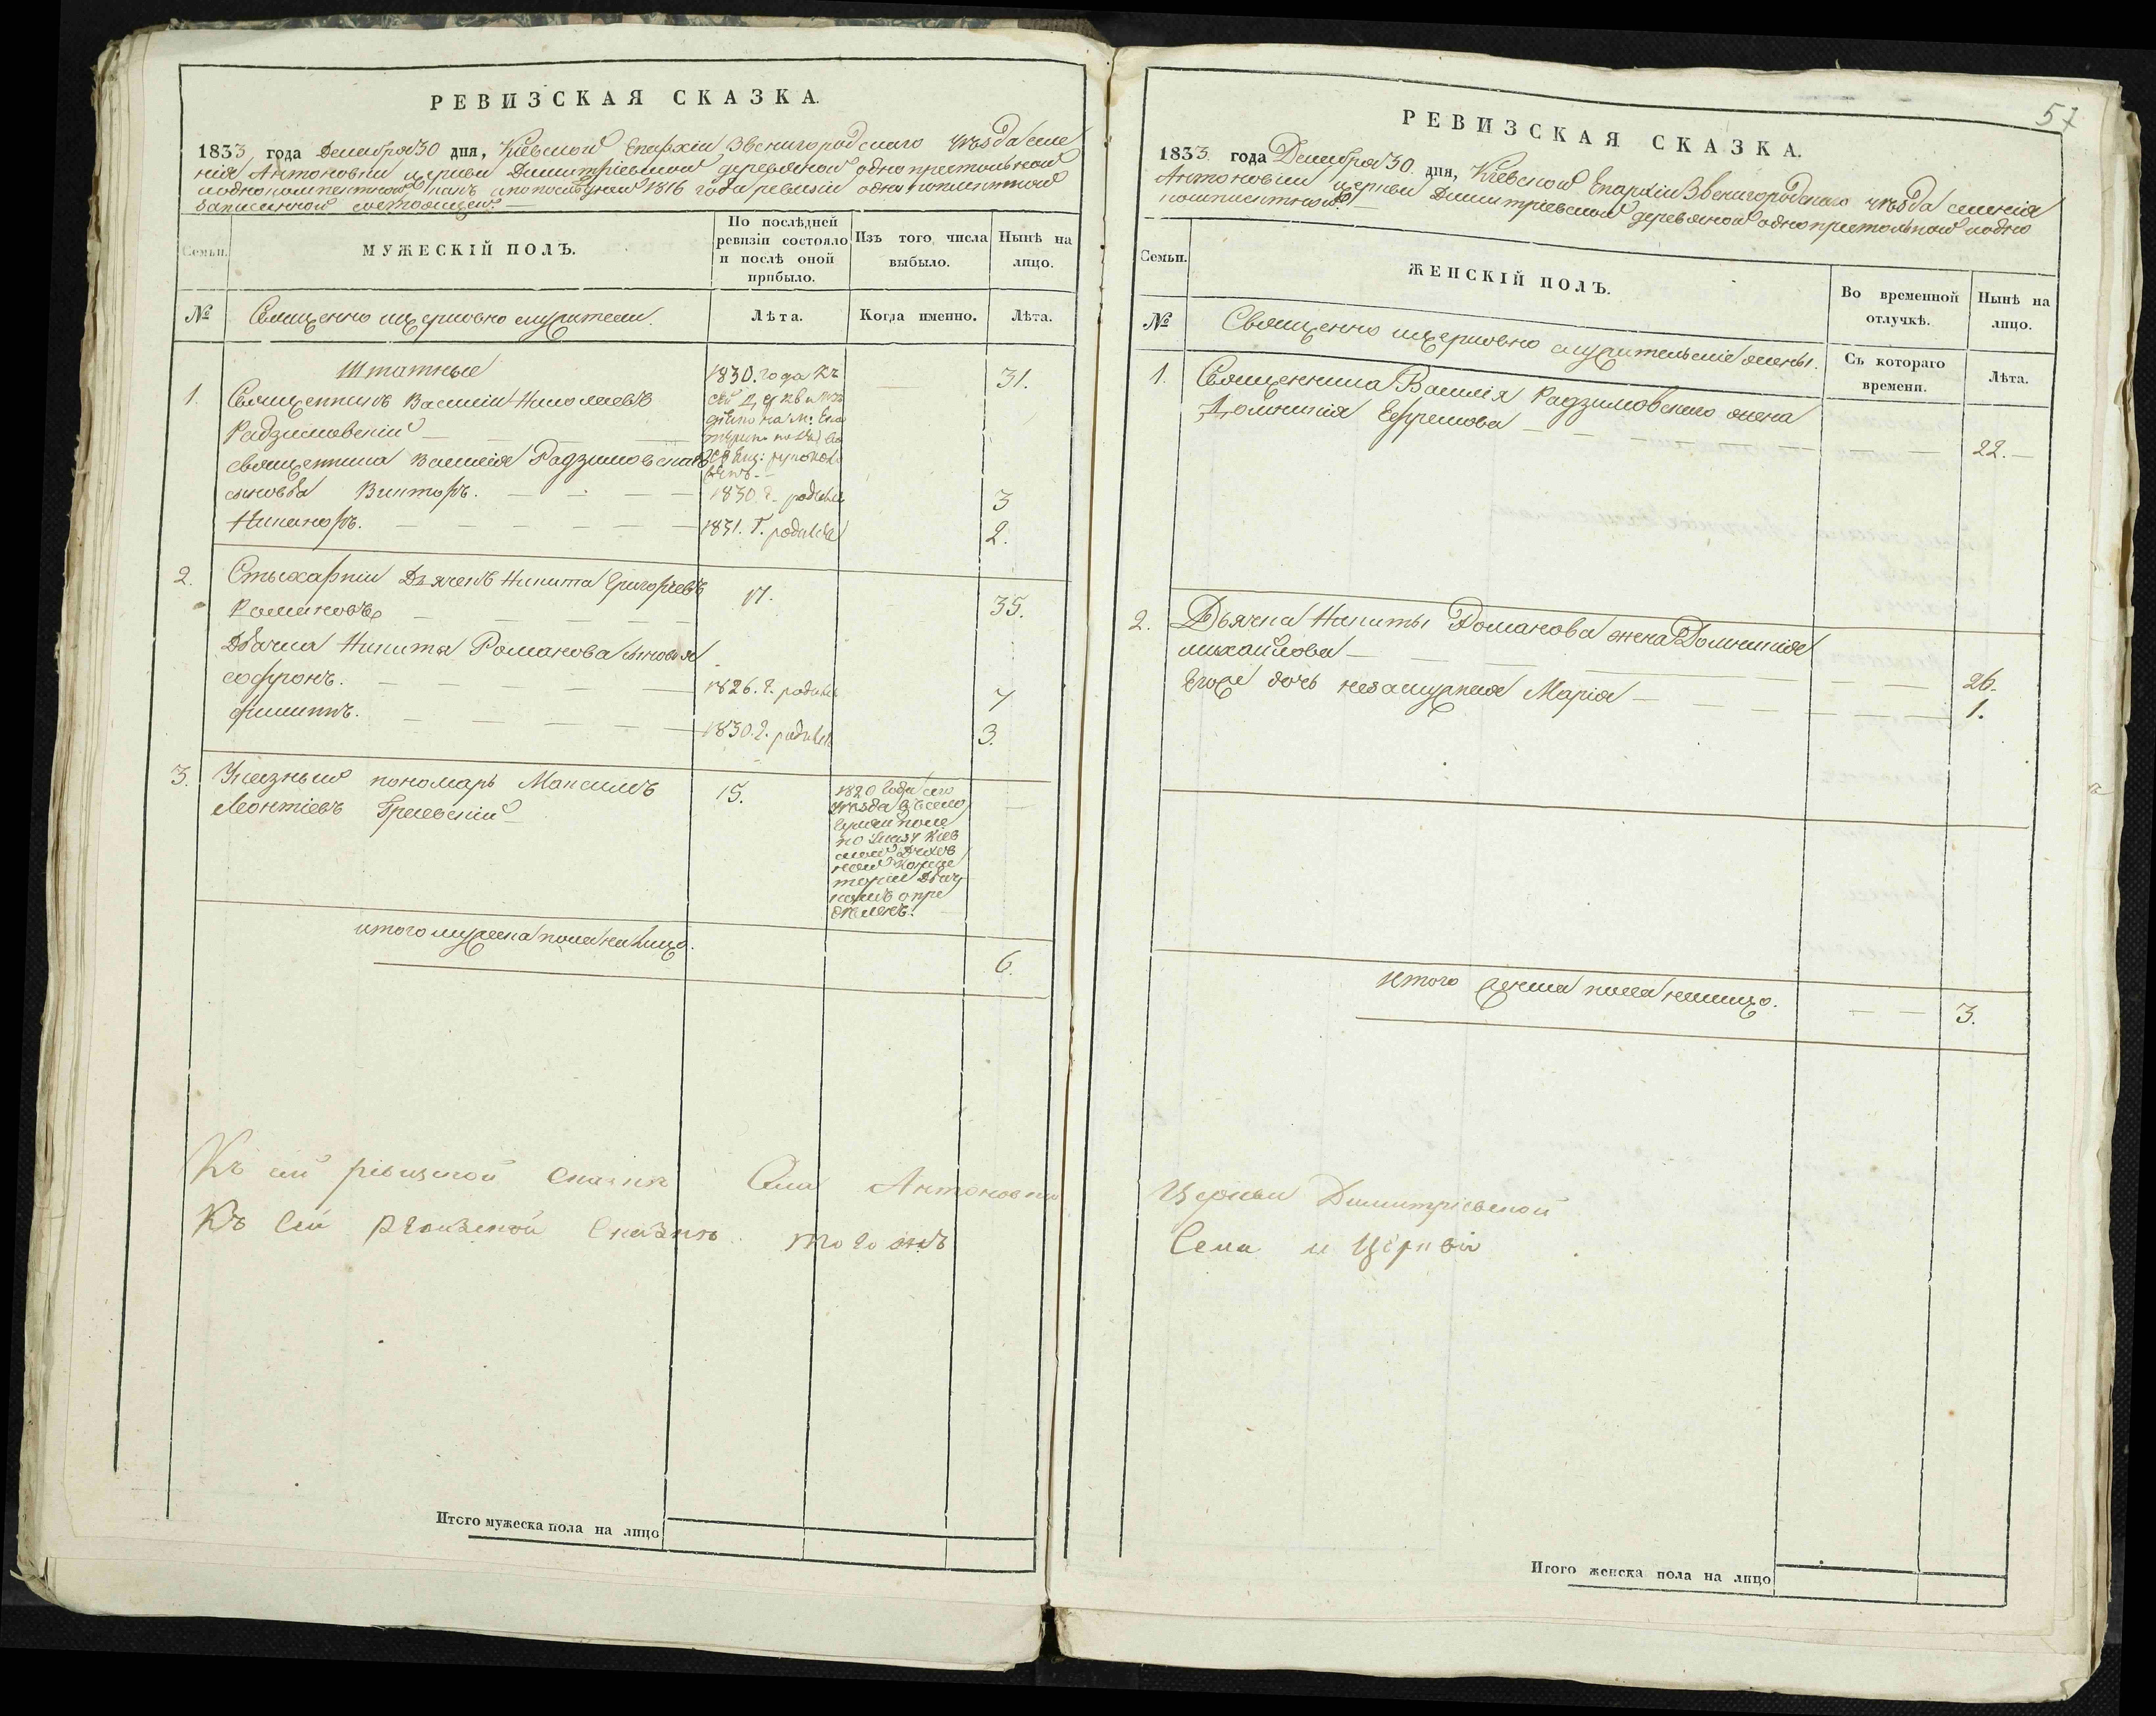 РЕВИЗСКАЯ СКАЗКА.
1833 года Декабря 30 дня, Кіевской Епархіи Звенигородскаго уѣзда селе
нія Антоновки церкви Димитріевской деревяной однопрестольной
иоднокомплектной какъ ипопоследней 1816 года ревизіи однокомплектной
записанной состоящей.
Семьи.
МУЖЕСКІЙ ПОЛЪ.
По послѣдней ревизіи состояло и послѣ оной прибыло.
Изъ того числа выбыло.
Нынѣ на лицо.
№
Священно ицерковно служители.
Лѣта.
Когда именно.
Лѣта.
Штатные
1.
Священникъ Василій Николаевъ
Радзимовскій
1830. года къ
сей церкви
31.
священника Василія Радзимовскаго
сыновья Викторъ.
1830. г. родился
3
Никаноръ.
1831. г. родился
2.
2.
Стыхарній Дьячекъ Никита Григорьевъ
Романовъ
17.
35.
Дьячка Никиты Романова сыновья
софронъ.
1826. г. родился
7
филиппъ.
1830. г. родился
3.
3.
Указный пономарь Максимъ
Леонтіевъ Грилевскій
15.
1820 года сего
уѣзда въ село
по Указу Кіев
ской Духов
ной Консис
торіи Дьяч
комъ опре
дѣленъ.
итого мужеска пола на лицо.
6.
Къ сей ревизской сказкѣ Села Антоновки
Къ сей ревизской сказкѣ того жъ
Итого мужеска пола на лицо
57
РЕВИЗСКАЯ СКАЗКА.
1833 года Декабря 30. дня, Кіевской Епархіи Звенигородскаго уѣзда селенія
Антоновки церкви Димитріевской деревяной однопрестольной иодно
комплектной.
Семьи.
ЖЕНСКІЙ ПОЛЪ.
Во временной отлучкѣ.
Нынѣ на лицо.
№
Священно ицерковно служительскіе жены.
Съ котораго времени.
Лѣта.
1.
Священника Василія Радзимовскаго жена
Домникія Ефремова
22.
2.
Дьячка Никиты Романова жена Домникія
михайлова
26.
Егоже дочь незамужняя Марія
1.
Итого женска пола налицо.
3.
Церкви Димитріевской
Села и Церкви
Итого женска пола на лицо